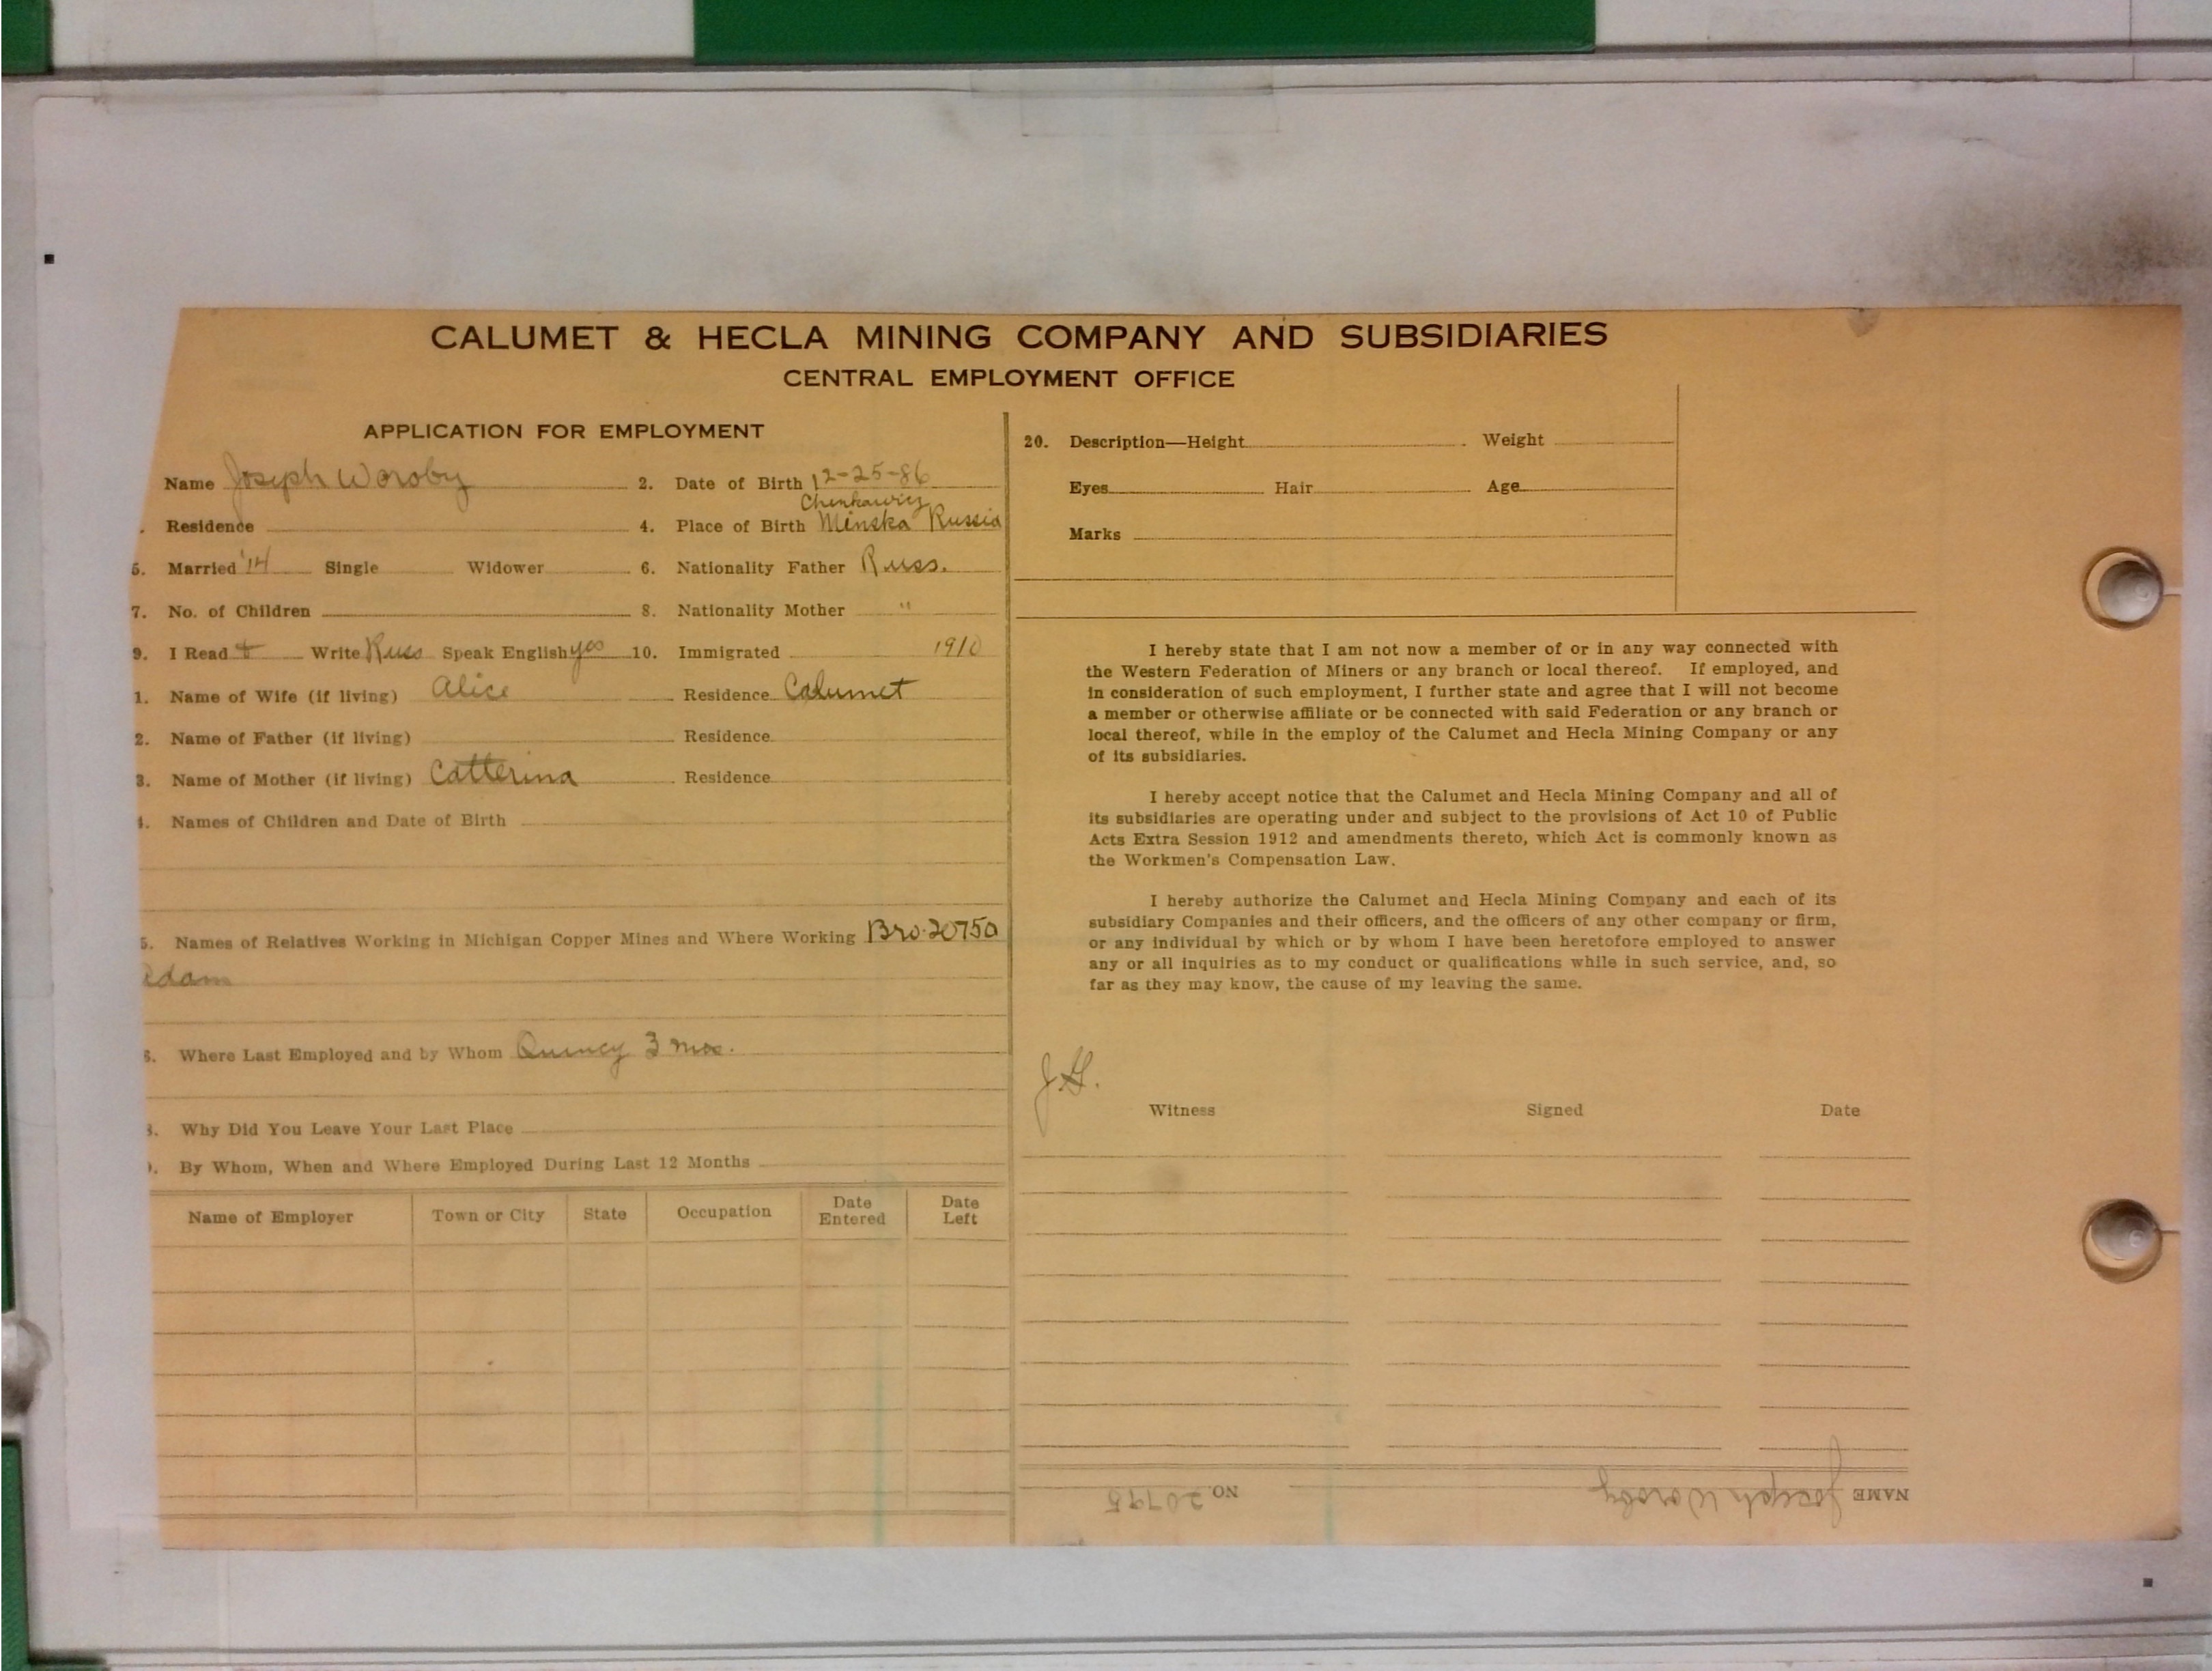 CALUMET & HECLA MINING COMPANY AND SUBSIDIARIES
CENTRAL EMPLOYMENT OFFICE
APPLICATION FOR EMPLOYMENT
Name Joseph Woroby 2. Date of Birth 12-25-86
Residence 4. Place of Birth Minska Russia
5. Married '14 Single Widower 6. Nationality Father Russ.
7. No. of Children 8. Nationality Mother "
9. I Read & Write Russ Speak English yes 10. Immigrated 1910
1. Name of Wife (if living) Alice Residence Calumet
2. Name of Father (if living) Residence
3. Name of Mother (if living) Catterina Residence
4. Names of Children and Date of Birth
5. Names of Relatives Working in Michigan Copper Mines and Where Working Bro. 20750
Adam
6. Where Last Employed and by Whom Quincy 3 mos.
8. Why Did You Leave Your Last Place
9. By Whom, When and Where Employed During Last 12 Months
Name of Employer Town or City State Occupation Date Entered Date Left
20. Description—Height Weight
Eyes Hair Age
Marks
I hereby state that I am not now a member of or in any way connected with
the Western Federation of Miners or any branch or local thereof. If employed, and
in consideration of such employment, I further state and agree that I will not become
a member or otherwise affiliate or be connected with said Federation or any branch or
local thereof, while in the employ of the Calumet and Hecla Mining Company or any
of its subsidiaries.
I hereby accept notice that the Calumet and Hecla Mining Company and all of
its subsidiaries are operating under and subject to the provisions of Act 10 of Public
Acts Extra Session 1912 and amendments thereto, which Act is commonly known as
the Workmen's Compensation Law.
I hereby authorize the Calumet and Hecla Mining Company and each of its
subsidiary Companies and their officers, and the officers of any other company or firm,
or any individual by which or by whom I have been heretofore employed to answer
any or all inquiries as to my conduct or qualifications while in such service, and, so
far as they may know, the cause of my leaving the same.
Witness Signed Date
NAME Joseph Woroby NO. 20795